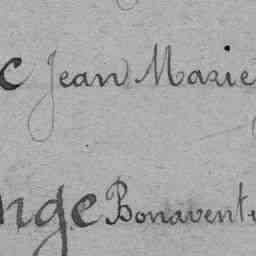 c Jean Marie
nge Bonavent